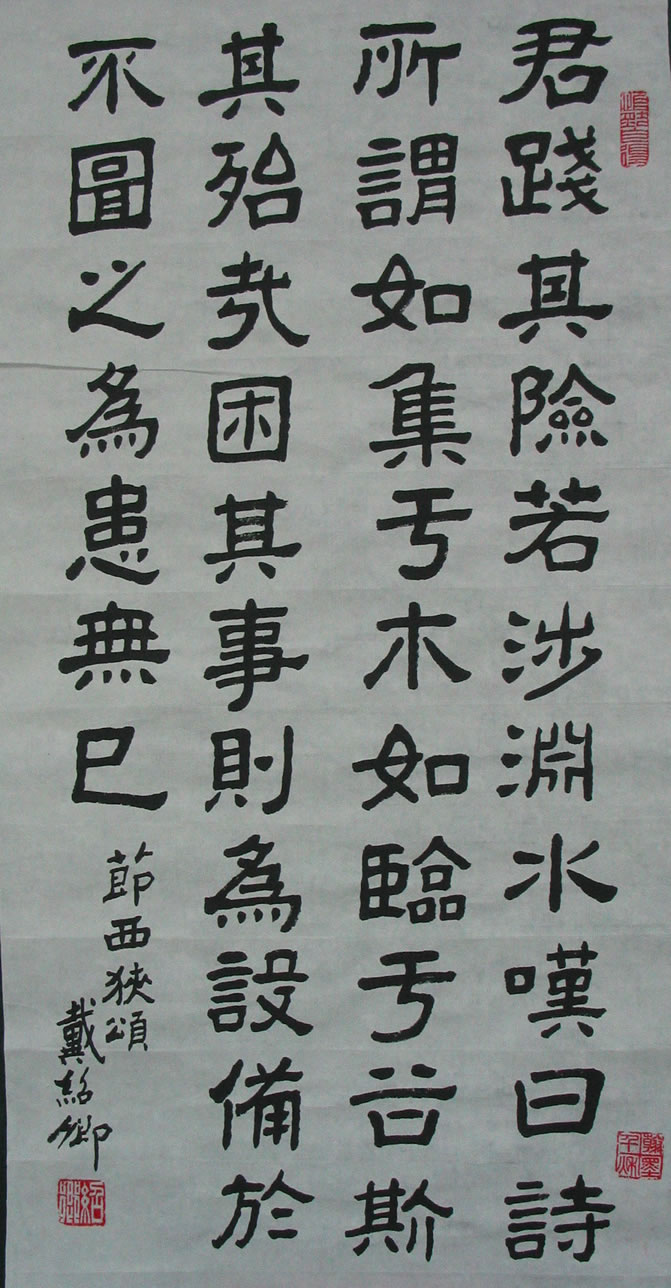 君踐其險若涉淵水嘆曰詩
所謂如集亐木如臨亐谷斯
其殆哉困其事則為設備於
不圖之為患無已
節西狹頌
戴紹卿